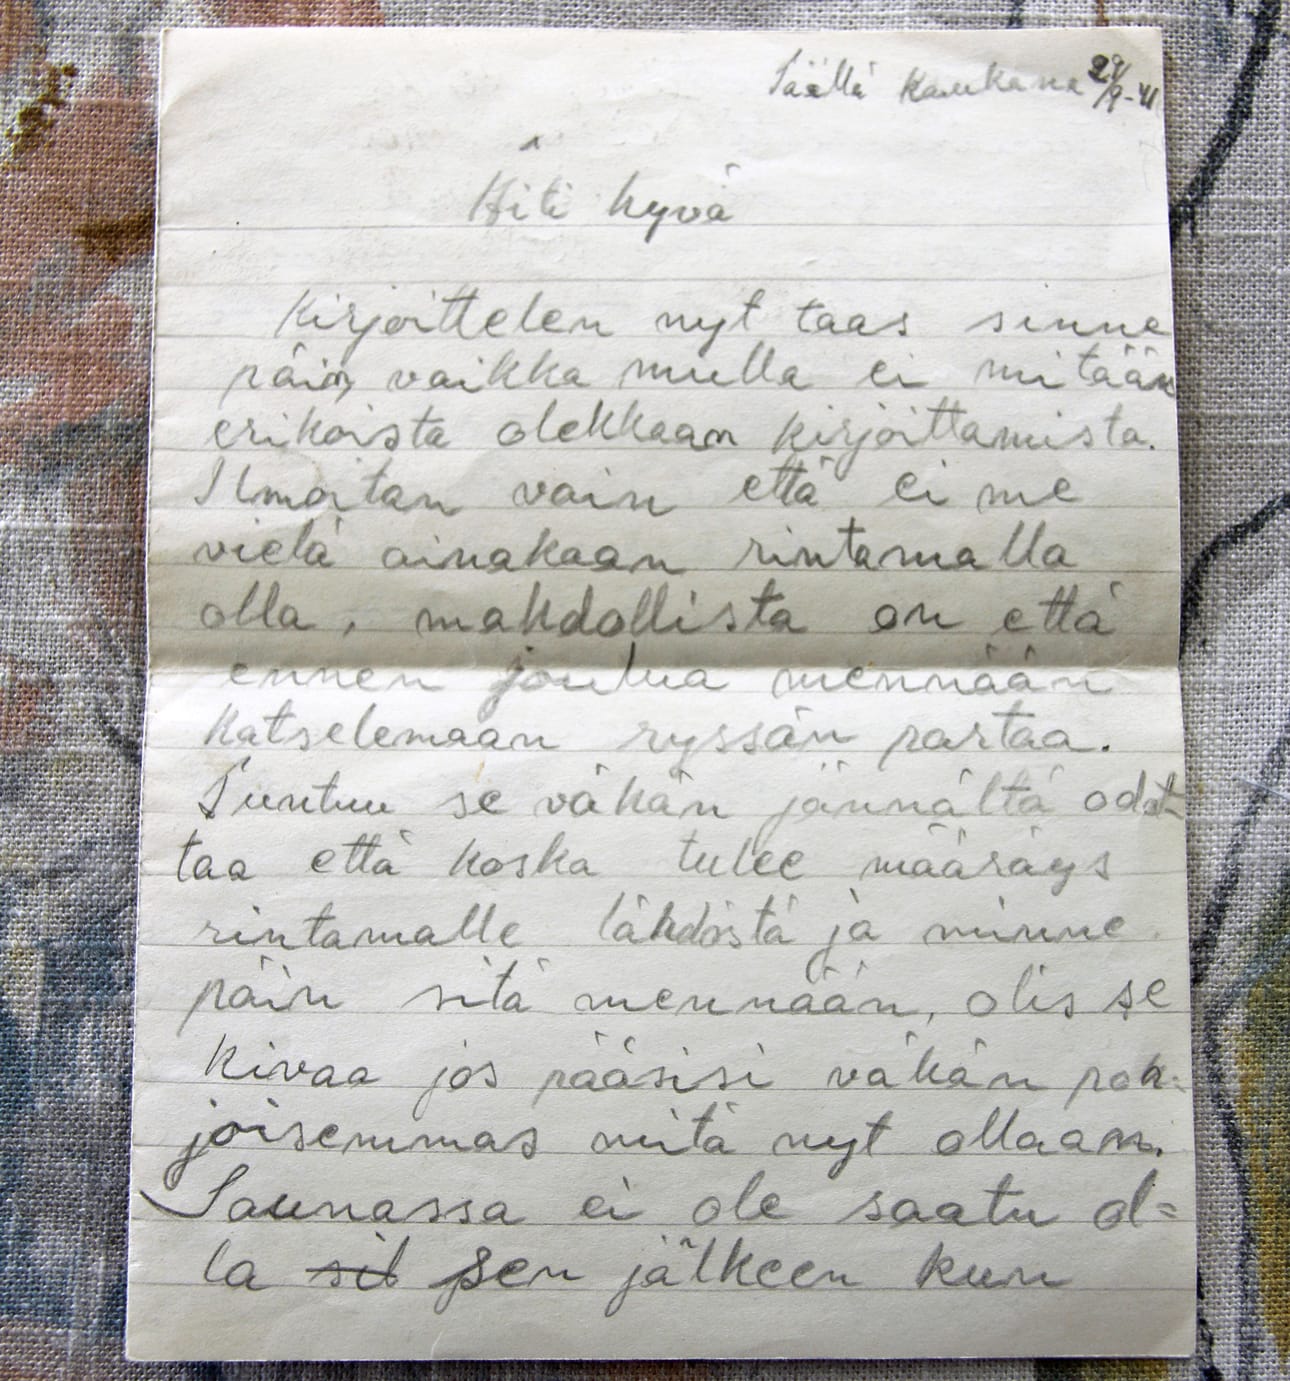 Täällä kaukana 29/9-41
Äiti hyvä
Kirjoittelen nyt taas sinne
päin, vaikka mulla ei mitään
erikoista olekkaan kirjoittamista.
Ilmoitan vain että ei me
vielä ainakaan rintamalla
olla, mahdollista on että
ennen joulua mennään
katselemaan ryssän partaa.
Tuntuu se vähän jännältä odot-
taa että koska tulee määräys
rintamalle lähdöstä ja minne
päin sitä mennään, olis se
kivaa jos pääsisi vähän poh=
joisemmas mitä nyt ollaan.
Saunassa ei ole saatu ol=
la sit sen jälkeen kun